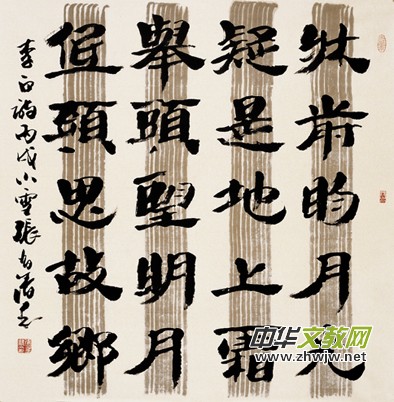 牀前眀月光
疑是地上霜
舉頭朢明月
低頭思故鄉
李白詩丙戌小雪張
中华文教网
www.zhwjw.net